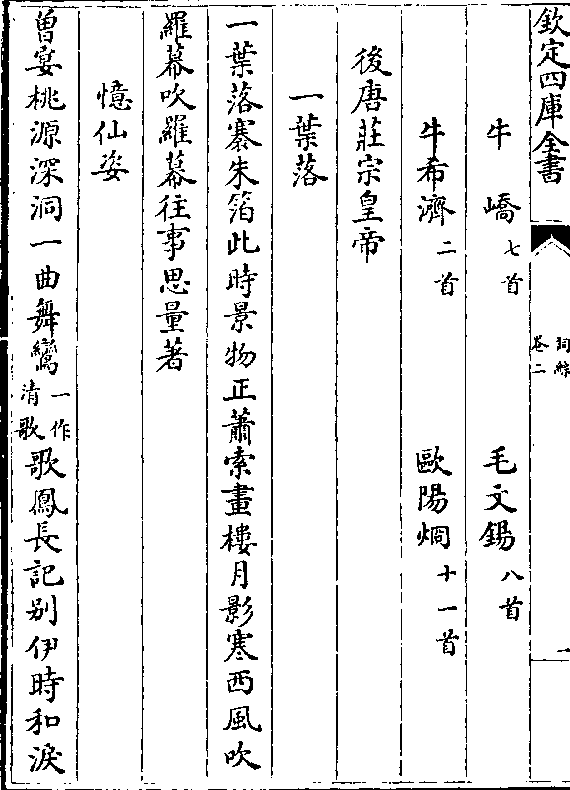 欽定四庫全書
詞綜
卷二
一
牛　嶠七首　毛文錫八首
牛希濟二首　歐陽烱十一首
後唐莊宗皇帝
一葉落
一葉落褰朱箔此時景物正蕭索畫樓月影寒西風吹
羅幕吹羅幕往事思量著
憶仙姿
曽宴桃源深洞一曲舞鸞一作清歌歌鳳長記別伊時和淚